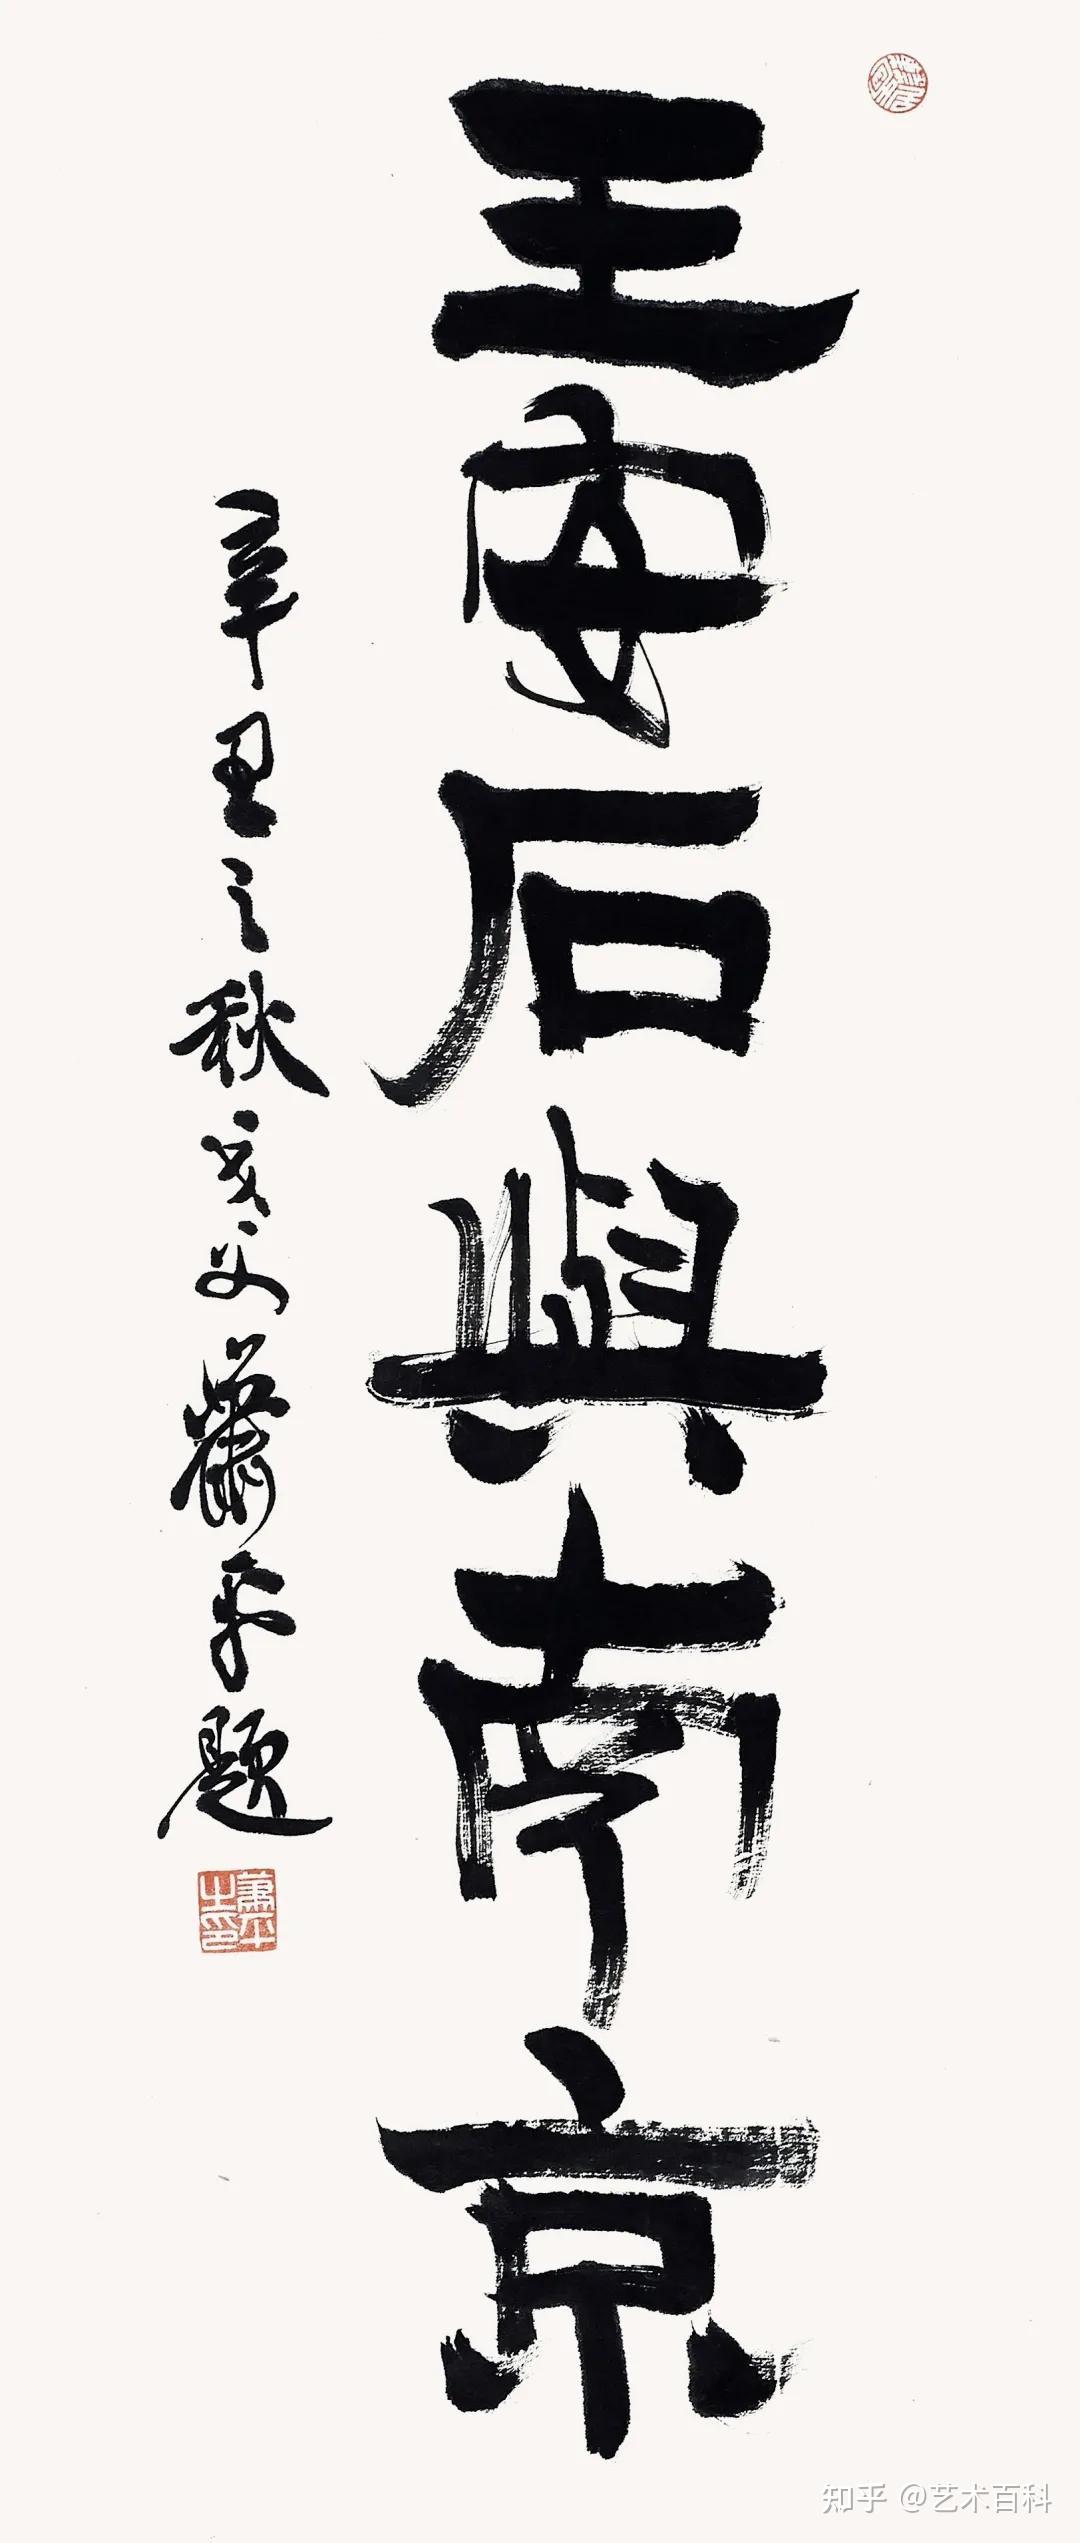 王安石與南京
辛丑之秋戈父蕭平題
蕭平之印
知乎 @艺术百科